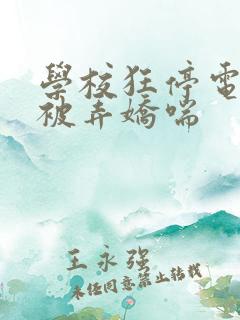 學校狂停電
被弄嬌喘
王永強
未经同意禁止转载